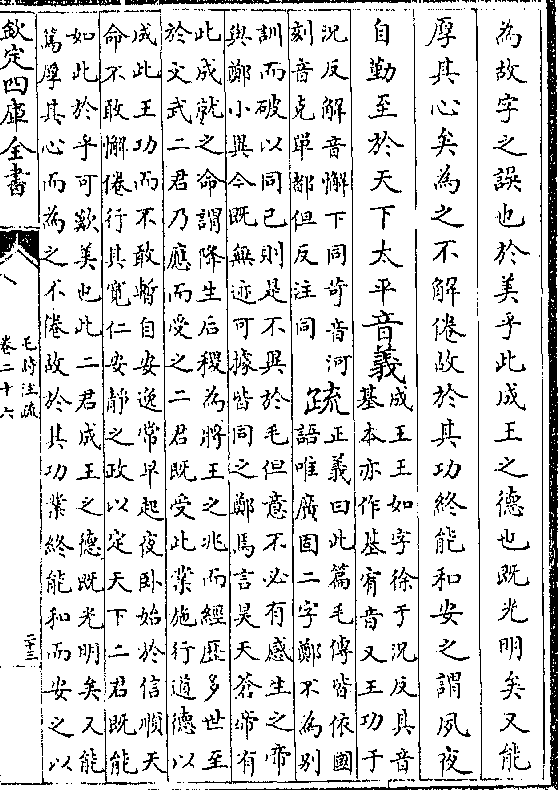 為故字之誤也於美乎此成王之德也既光明矣又能
厚其心矣為之不解倦故於其功終能和安之謂夙夜
自勤至於天下太平音義
成王王如字徐于況反其音
基本亦作基宥音又王功于
況反解音懈下同苛音河
刻音克單都但反注同
疏
正義曰此篇毛傳皆依國
語唯廣固二字鄭不為別
訓而破以同已則是不異於毛但意不必有感生之帝
與鄭小異今既無迹可據皆同之鄭焉言昊天蒼帝有
此成就之命謂降生后稷為將王之兆而經歷多世至
於文武二君乃應而受之二君既受此業施行道德以
成此王功而不敢暫自安逸常早起夜卧始於信順天
命不敢懈倦行其寬仁安靜之政以定天下二君既能
如此於乎可歎美也此二君成王之德既光明矣又能
篤厚其心而為之不倦故於其功業終能和而安之以
欽定四庫全書
毛詩注疏
卷二十六
二十三